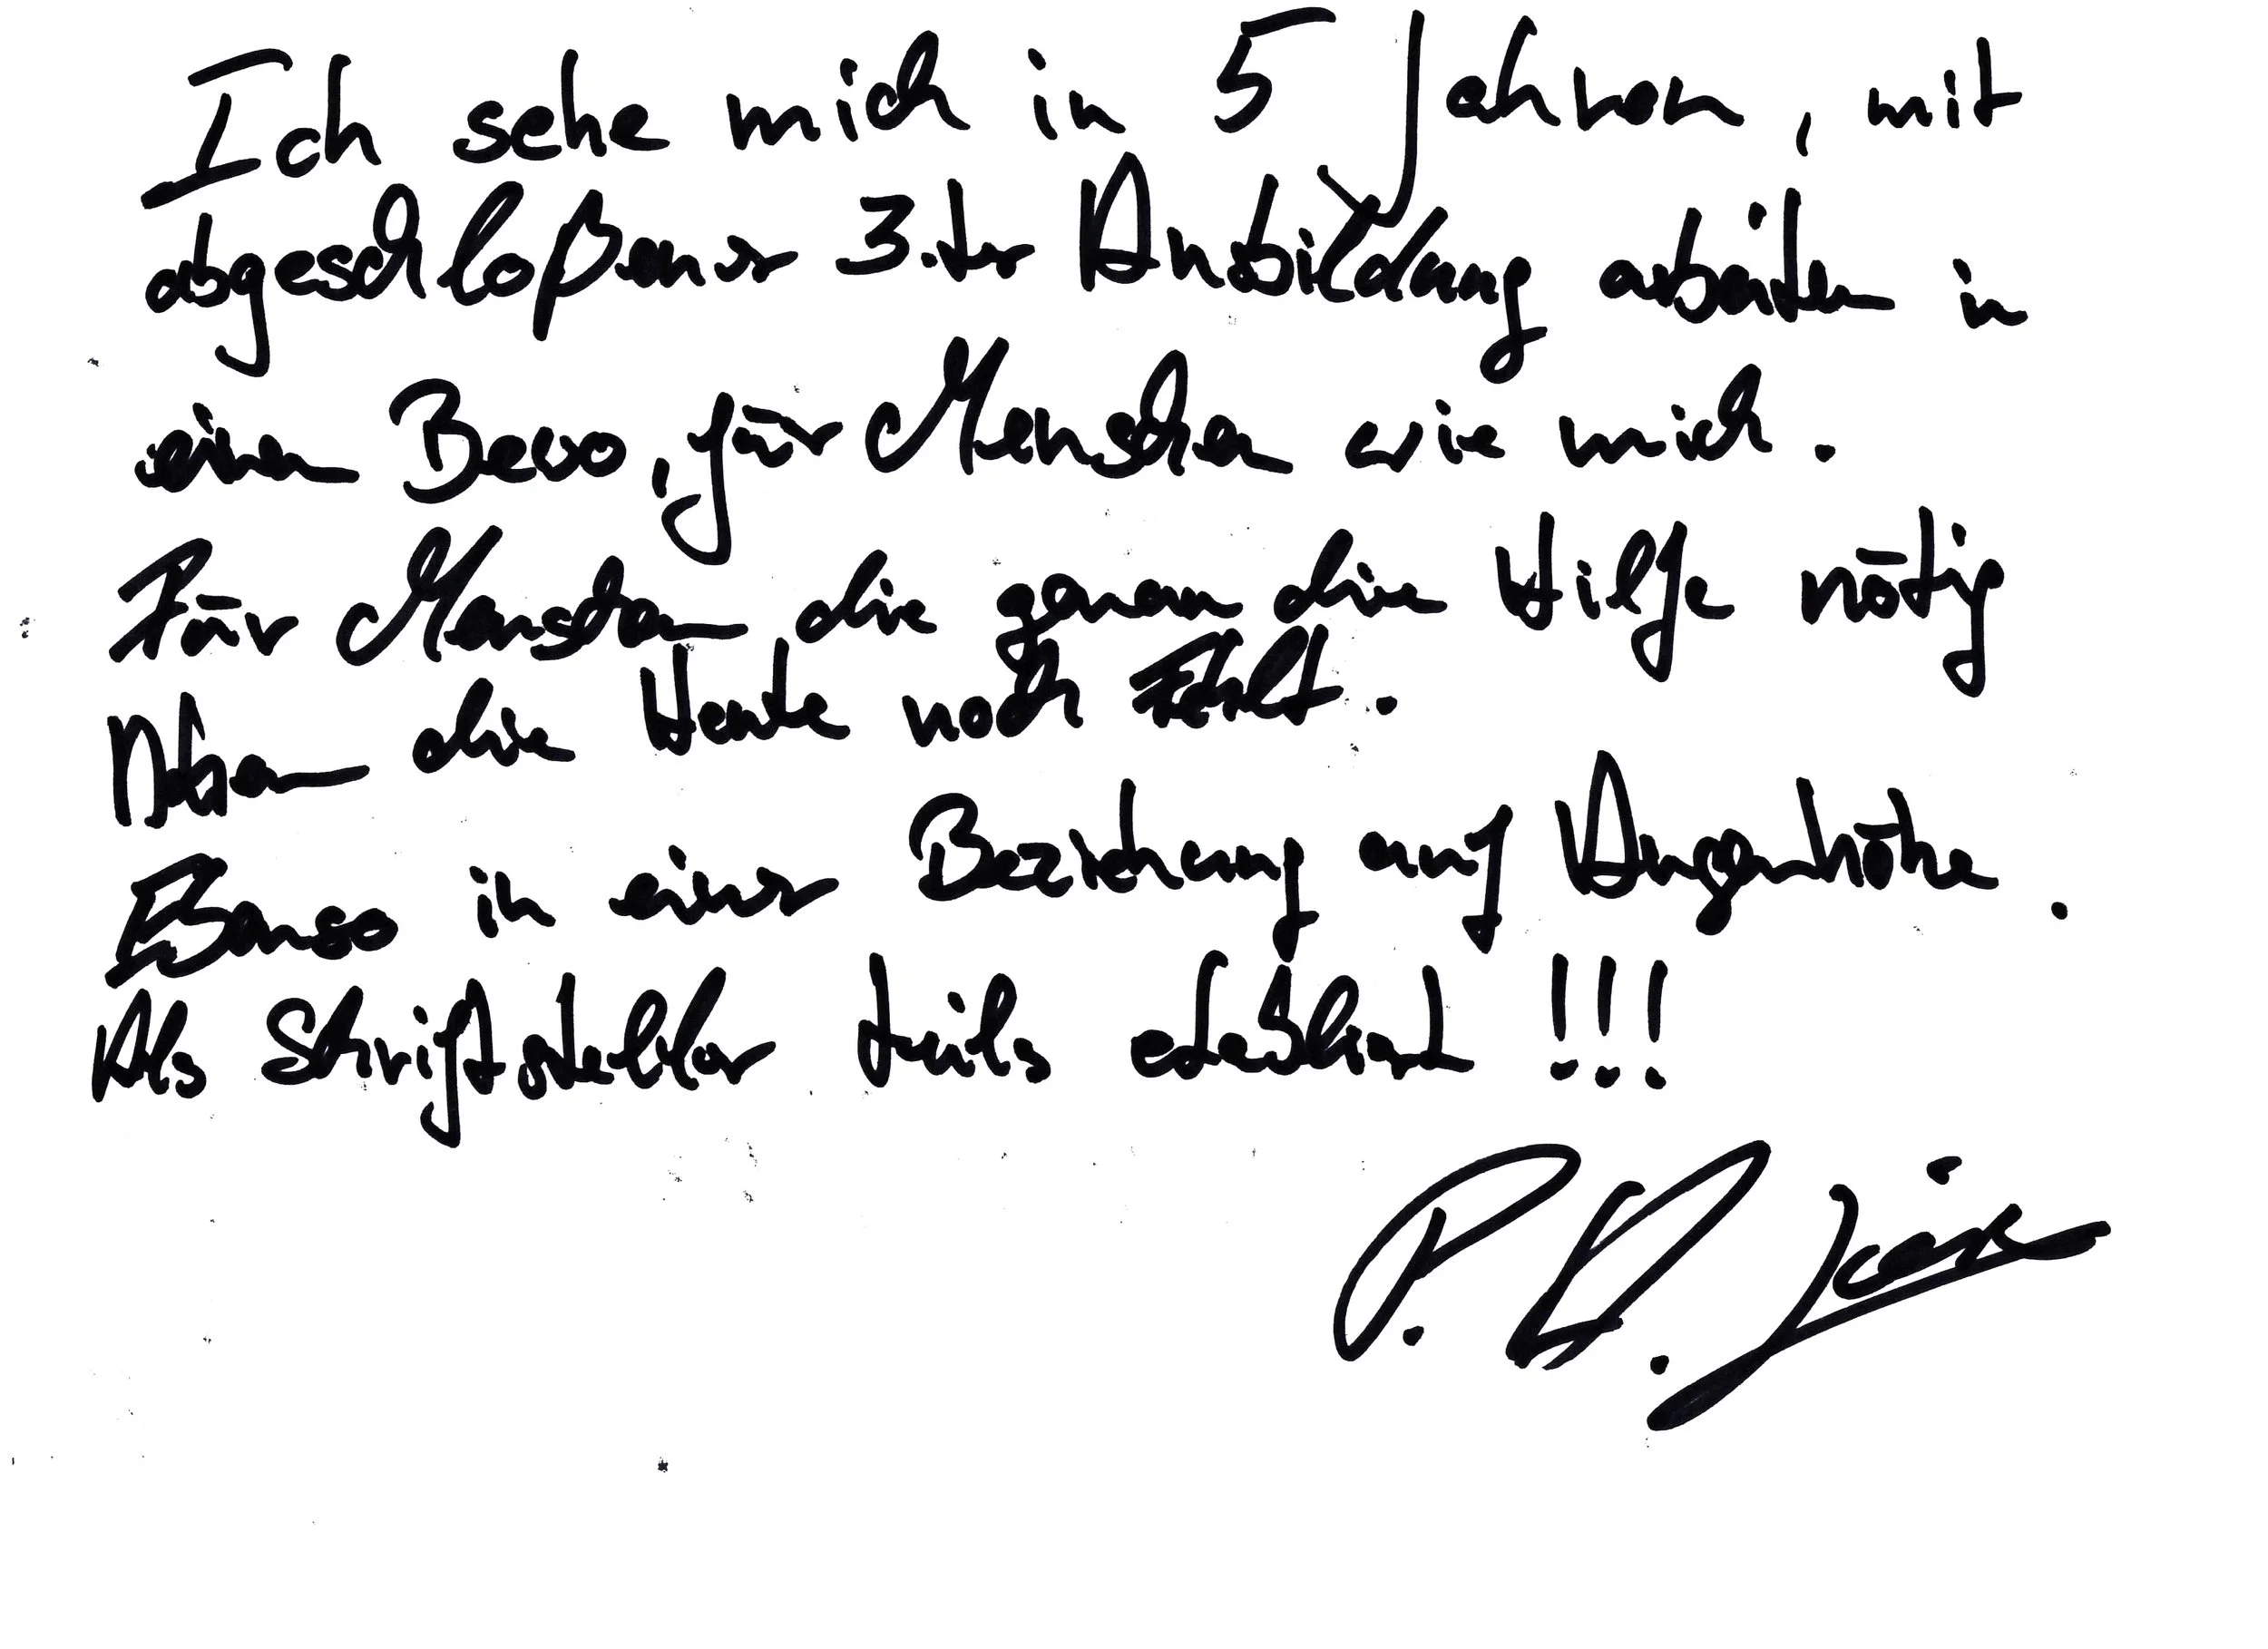 Ich sehe mich in 5 Jahren, mit
abgeschloßener 3.ter Ausbildung arbeiten in
einem Bewo, für Menschen wie mich.
Für Menschen die genau die Hilfe nötig
haben die Heute noch Fehlt.
Ebenso in einer Beziehung auf Augenhöhe.
Als Schriftsteller teils etabliert!!!
P.